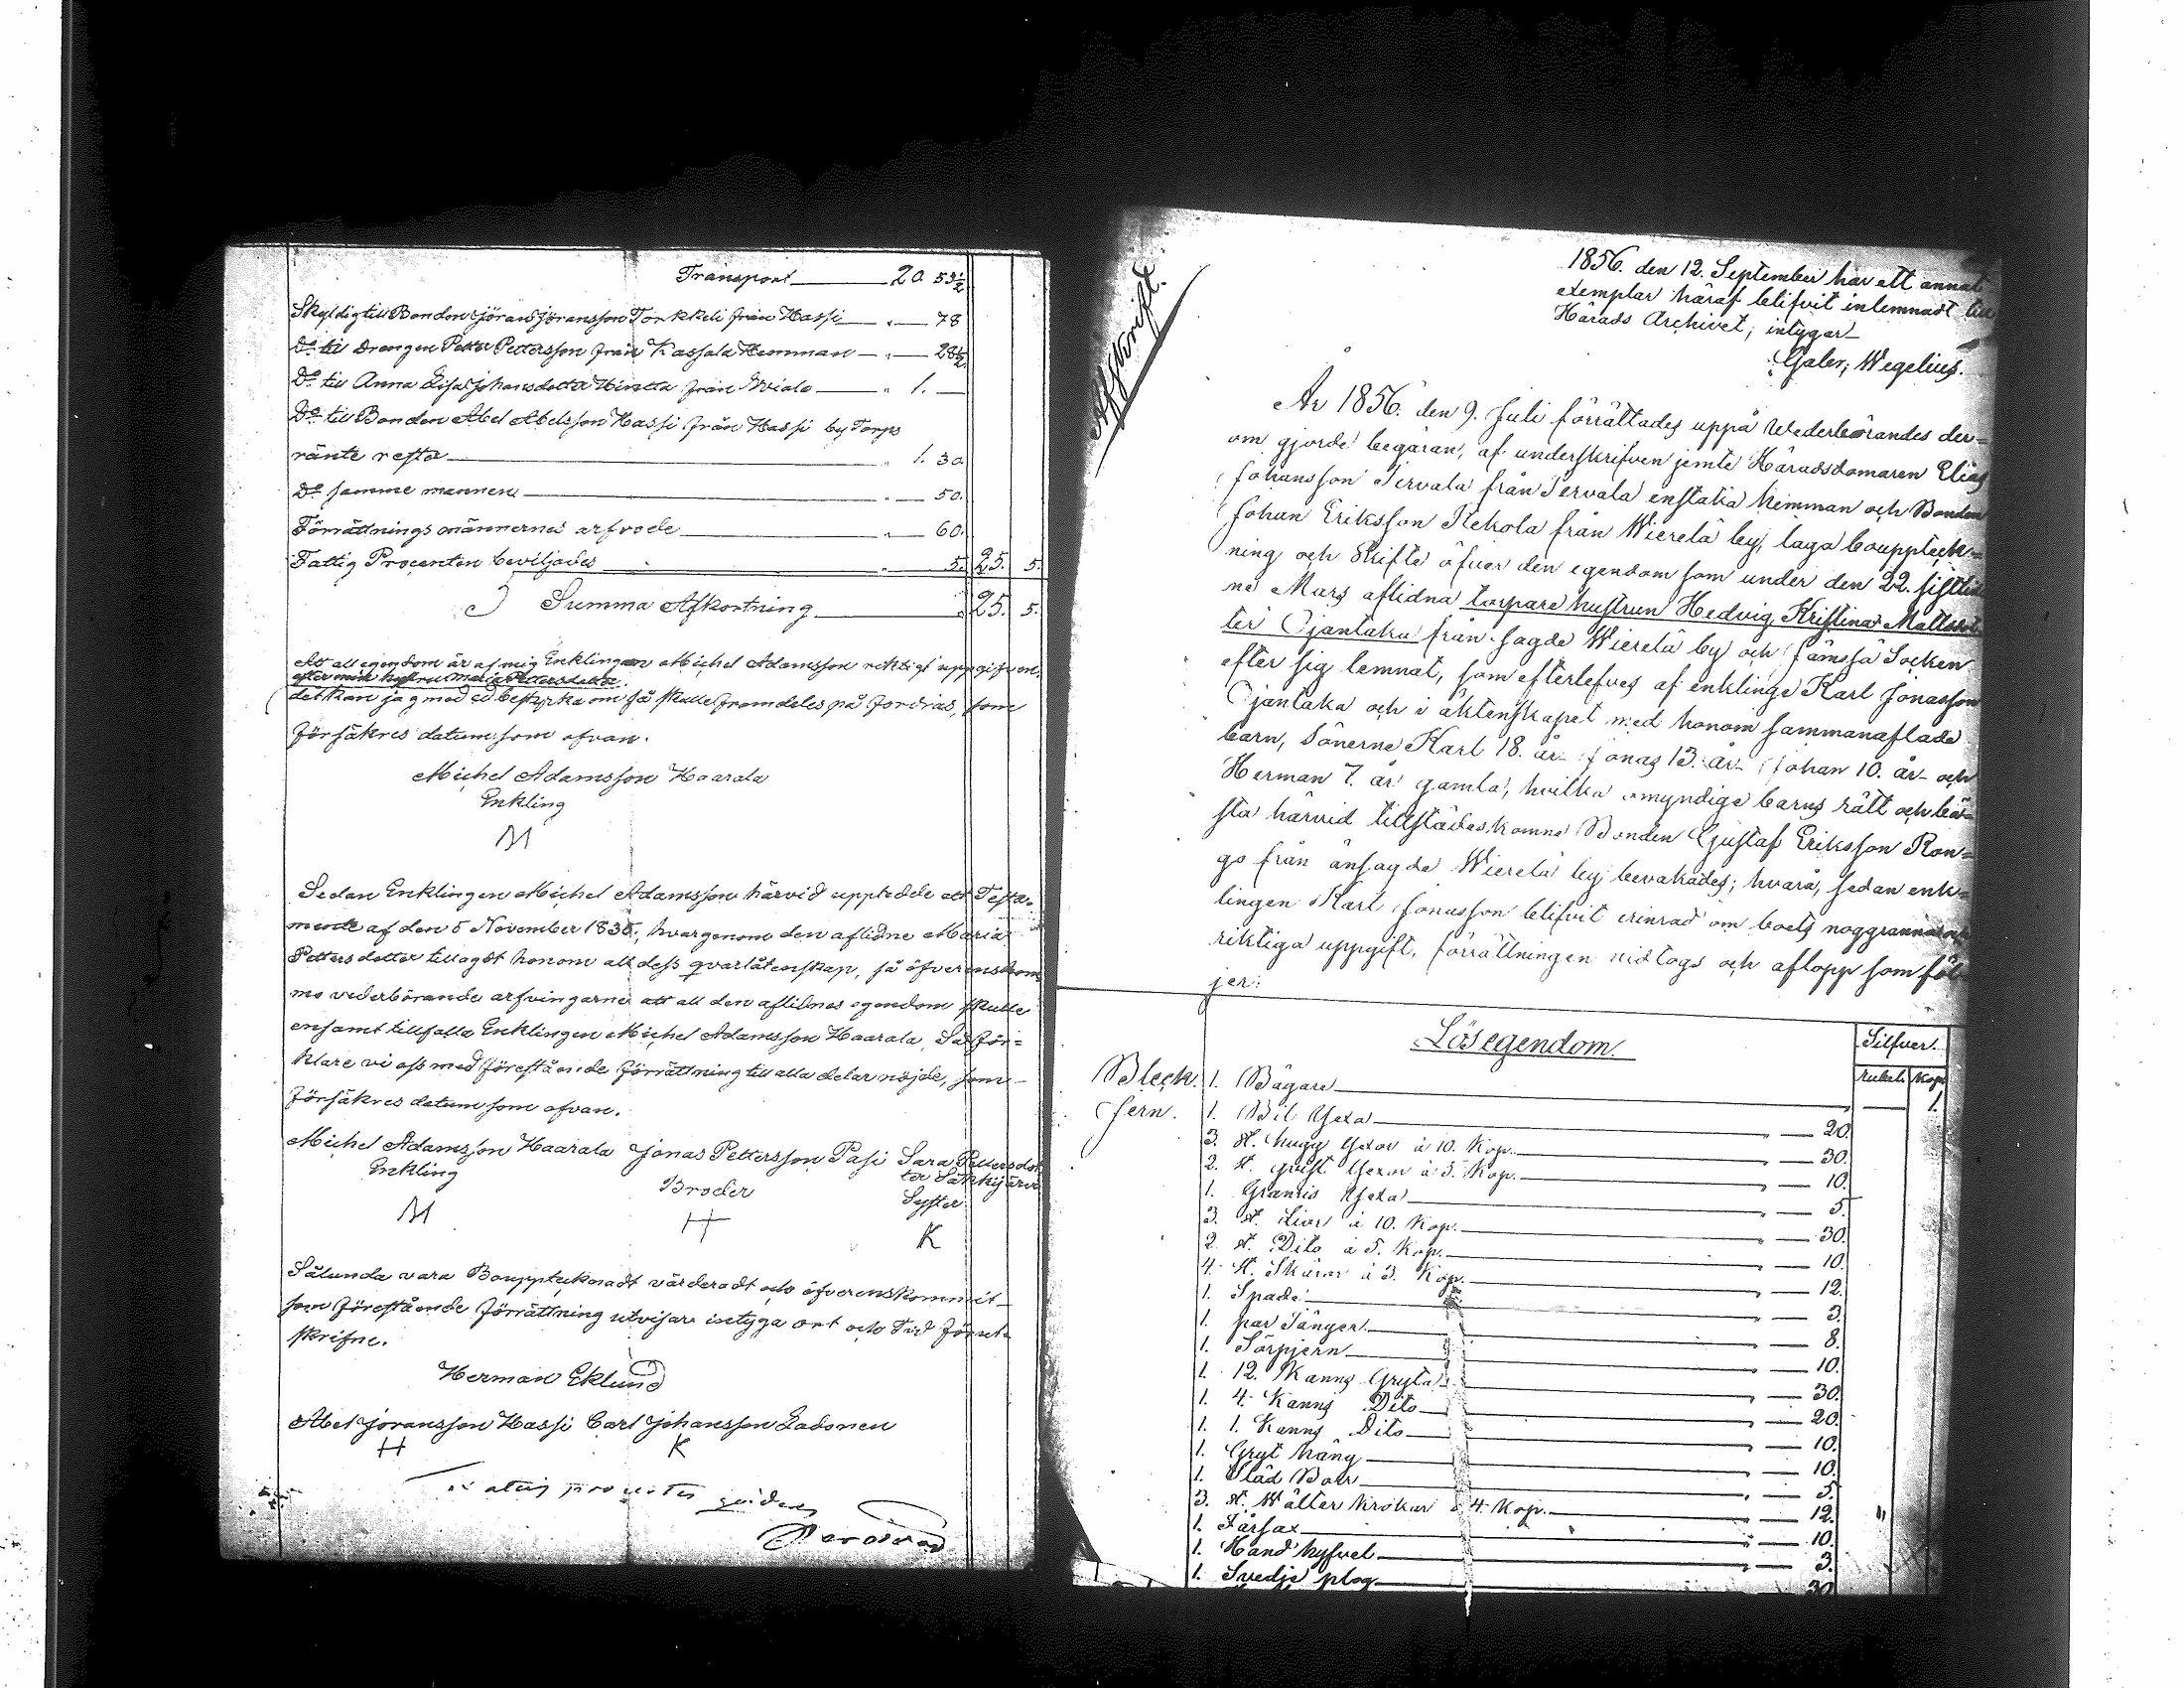 Transport 20. 53½
Skyldig till Bonden Jöran Jöransson Torkkeli från Hassi " — 78
Do till Drengen Petter Pettersson från Kassala Hemman — " — 28½
Do till Anna Lisa Johansdotter från " 1. —
Do till Bonden Abel Abelsson Hassi från Hassi by Torps
ränte resta " 1. 30.
Do samme mannen " — 50.
Förrättningsmännernes arfvode " — 60.
Fattig Procenten beviljades " 5. 25. 5.
Summa Afkortning 25. 5.
Att all egendom är af mig Enklingen Michel Adamsson riktigt uppgifven
efter min hustru Maria Pettersdotter
det kan jag med ed bestyrka om så skulle framdeles på fordras, som
försäkres datum som ofvan.
Michel Adamsson Haarala
Enkling
M
Sedan Enklingen Michel Adamsson härvid upptedde ett Testa-
mente af den 5 November 1835, hvargenom den aflidne Maria
Pettersdotter tillagdt honom all dess qvarlåtenskap, så öfverenskom
mo vederbörande arfvingarne att all den aflidnes egendom skulle
ensamt tillfalla Enklingen Michel Adamsson Haarala, Så För-
klare vi oss med förestående förrättning till alla delar nöjde, som
försäkres datum som ofvan.
Michel Adamsson Haarala Jonas Pettersson Pasi Sara Pettersdot
Enkling Broder ter Säkkijärvi
Syster
M H K
Sålunda vara Bouppteknadt värderadt och öfverenskommit
som förestående förrättning utvisar intyga ort och Tid förut-
skrifne.
Herman Eklund
Abel Joransson Hassi Carl Johansson Ladonen
H K
procenter
Afskrift.
1856. den 12. September har ett annat
exemplar häraf blifvit inlemnadt till
Härads Archivet; intygar
Galer; Wegelius.
År 1856. den 9. Juli förrättades uppå Wederbörandes der-
om gjorde begäran, af underskrifven jemte Häradsdomaren Elias
Johansson Tervala från Tervala enstaka hemman och Bonden
Johan Eriksson Rekola från Wierelä by, laga bouppteck-
ning och Skifte öfver den egendom som under den 22. sistlid
ne Mars aflidna torpare hustrun Hedvig Kristina Mattsdot
ter Ojantaka från sagde Wierelä by och Jämssä Socken
efter sig lemnat, som efterlefves af enklinge Karl Jonasson
Ojantaka och i äktenskapet med honom sammanaflade
barn, Sönerne Karl 18. år Jonas 13. år Johan 10. år och
Herman 7. år gamla, hvilka omyndige barns rätt och bä-
sta härvid tillstädeskomne Bonden Gustaf Eriksson Ron-
go från änsagde Wierelä by bevakades; hvarå, sedan enk-
lingen Karl Jonasson blifvit erinrad om boets noggranna och
riktiga uppgift, förrättningen vidtogs och aflopp som föl
jer:
Lösegendom. Silfver.
Rubel. Kop.
Bleck. 1. Bägare — 1.
Jern. 1. Bil Yxa " — 20.
3. st. hugg Yxor à 10. Kop. " — 30.
2. st. Yxor à 5. Kop. " — 10.
1. Yxa " — 5.
3. st. Liar à 10. Kop. " — 30.
2. st. Dito à 5. Kop. " — 10.
4. st. Skäror à 3. Kop. " — 12.
1. Spade " — 3.
1. par Tänger " — 8.
1. " — 10.
1. 12. Kanns Gryta " — 30.
1. 4. Kanns Dito " — 20.
1. 1. Kanns Dito " — 10.
1. Gryt häng " — 10.
1. Städ " — 5.
3. st. krokar à 4. Kop. " — 12.
1. Fårsax " — 10.
1. Hand hyfvel " — 3.
1. Svedje plog 30.